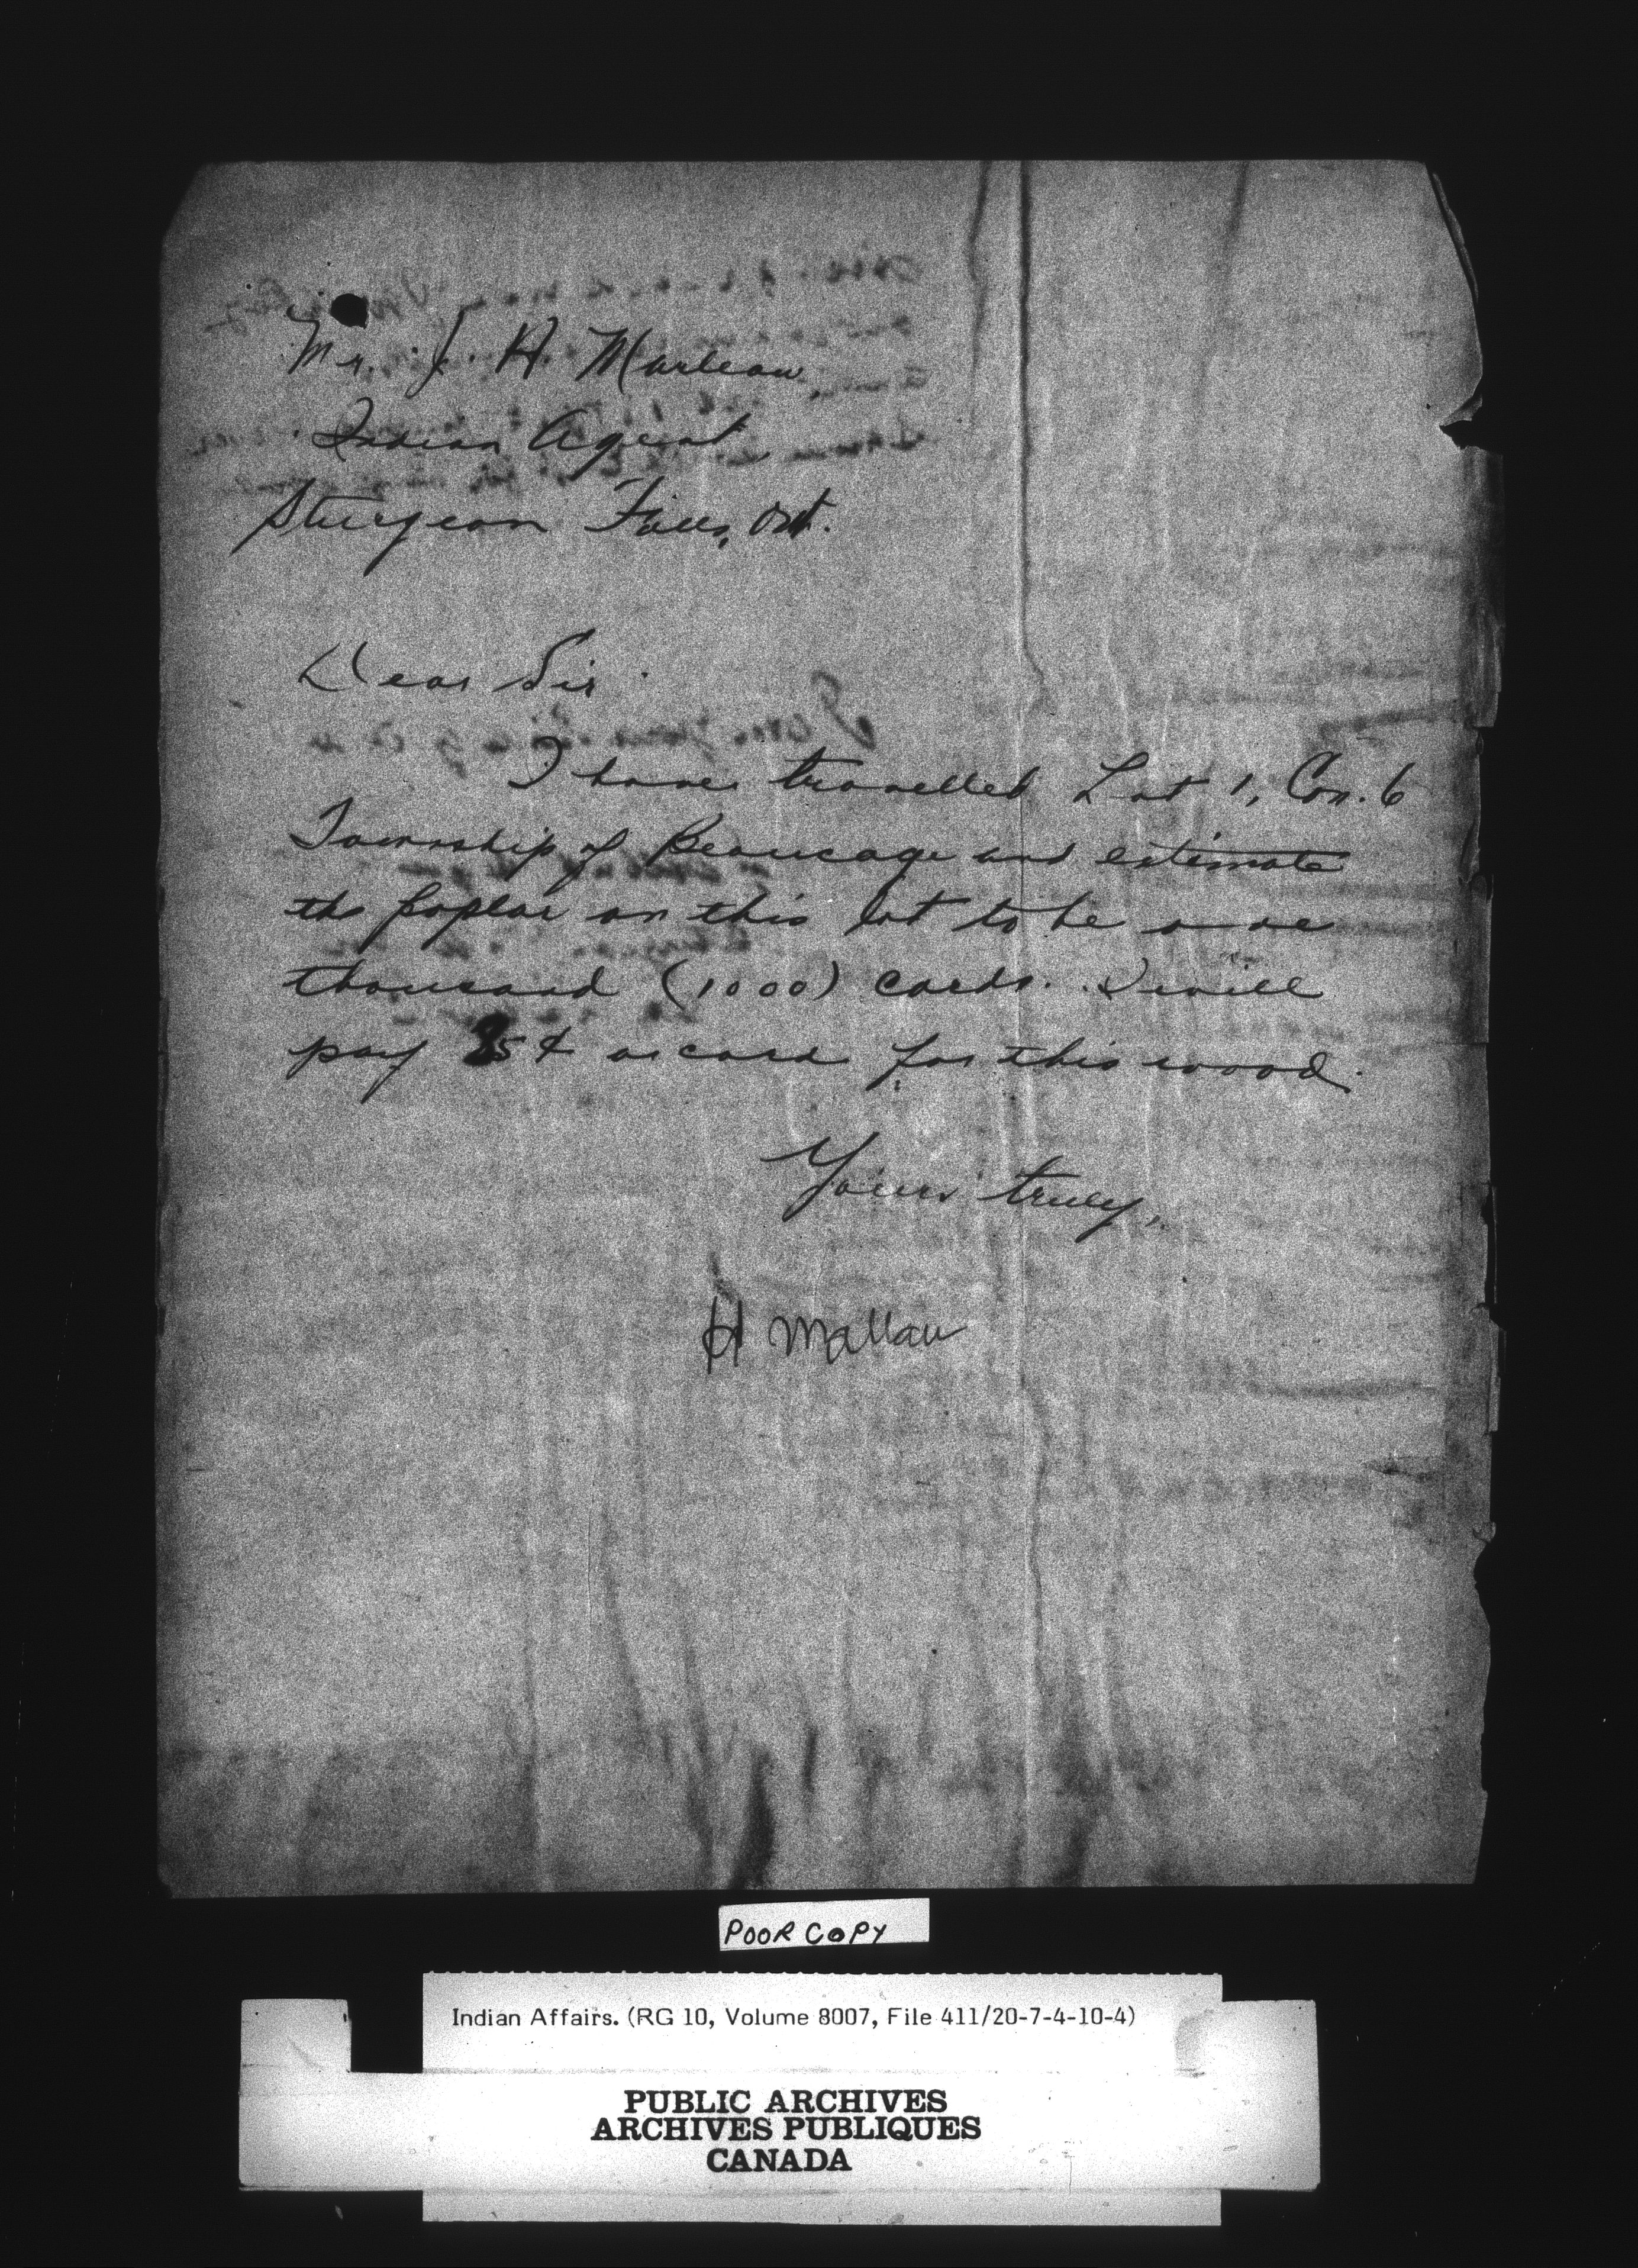 Mr. J. A. Marleau,
Indian Agent
Sturgeon Falls, Ont.
Dear Sir
I have travelled Lot 1, Con. 6
Township of Beaucage and estimate
the poplar on this lot to be one
thousand (1000) cords. I will
pay 85¢ a cord for this wood.
Yours truly,
H Mallau
POOR COPY
Indian Affairs. (RG 10, Volume 8007, File 411/20-7-4-10-4)
PUBLIC ARCHIVES
ARCHIVES PUBLIQUES
CANADA